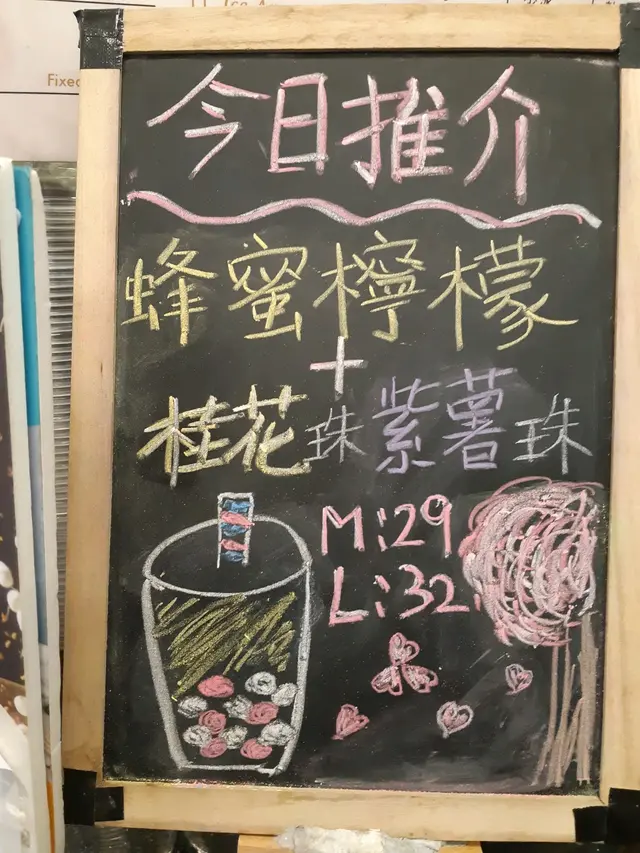 Fixed
今日推介
蜂蜜檸檬
+
桂花珠紫薯珠
M:29
L:32